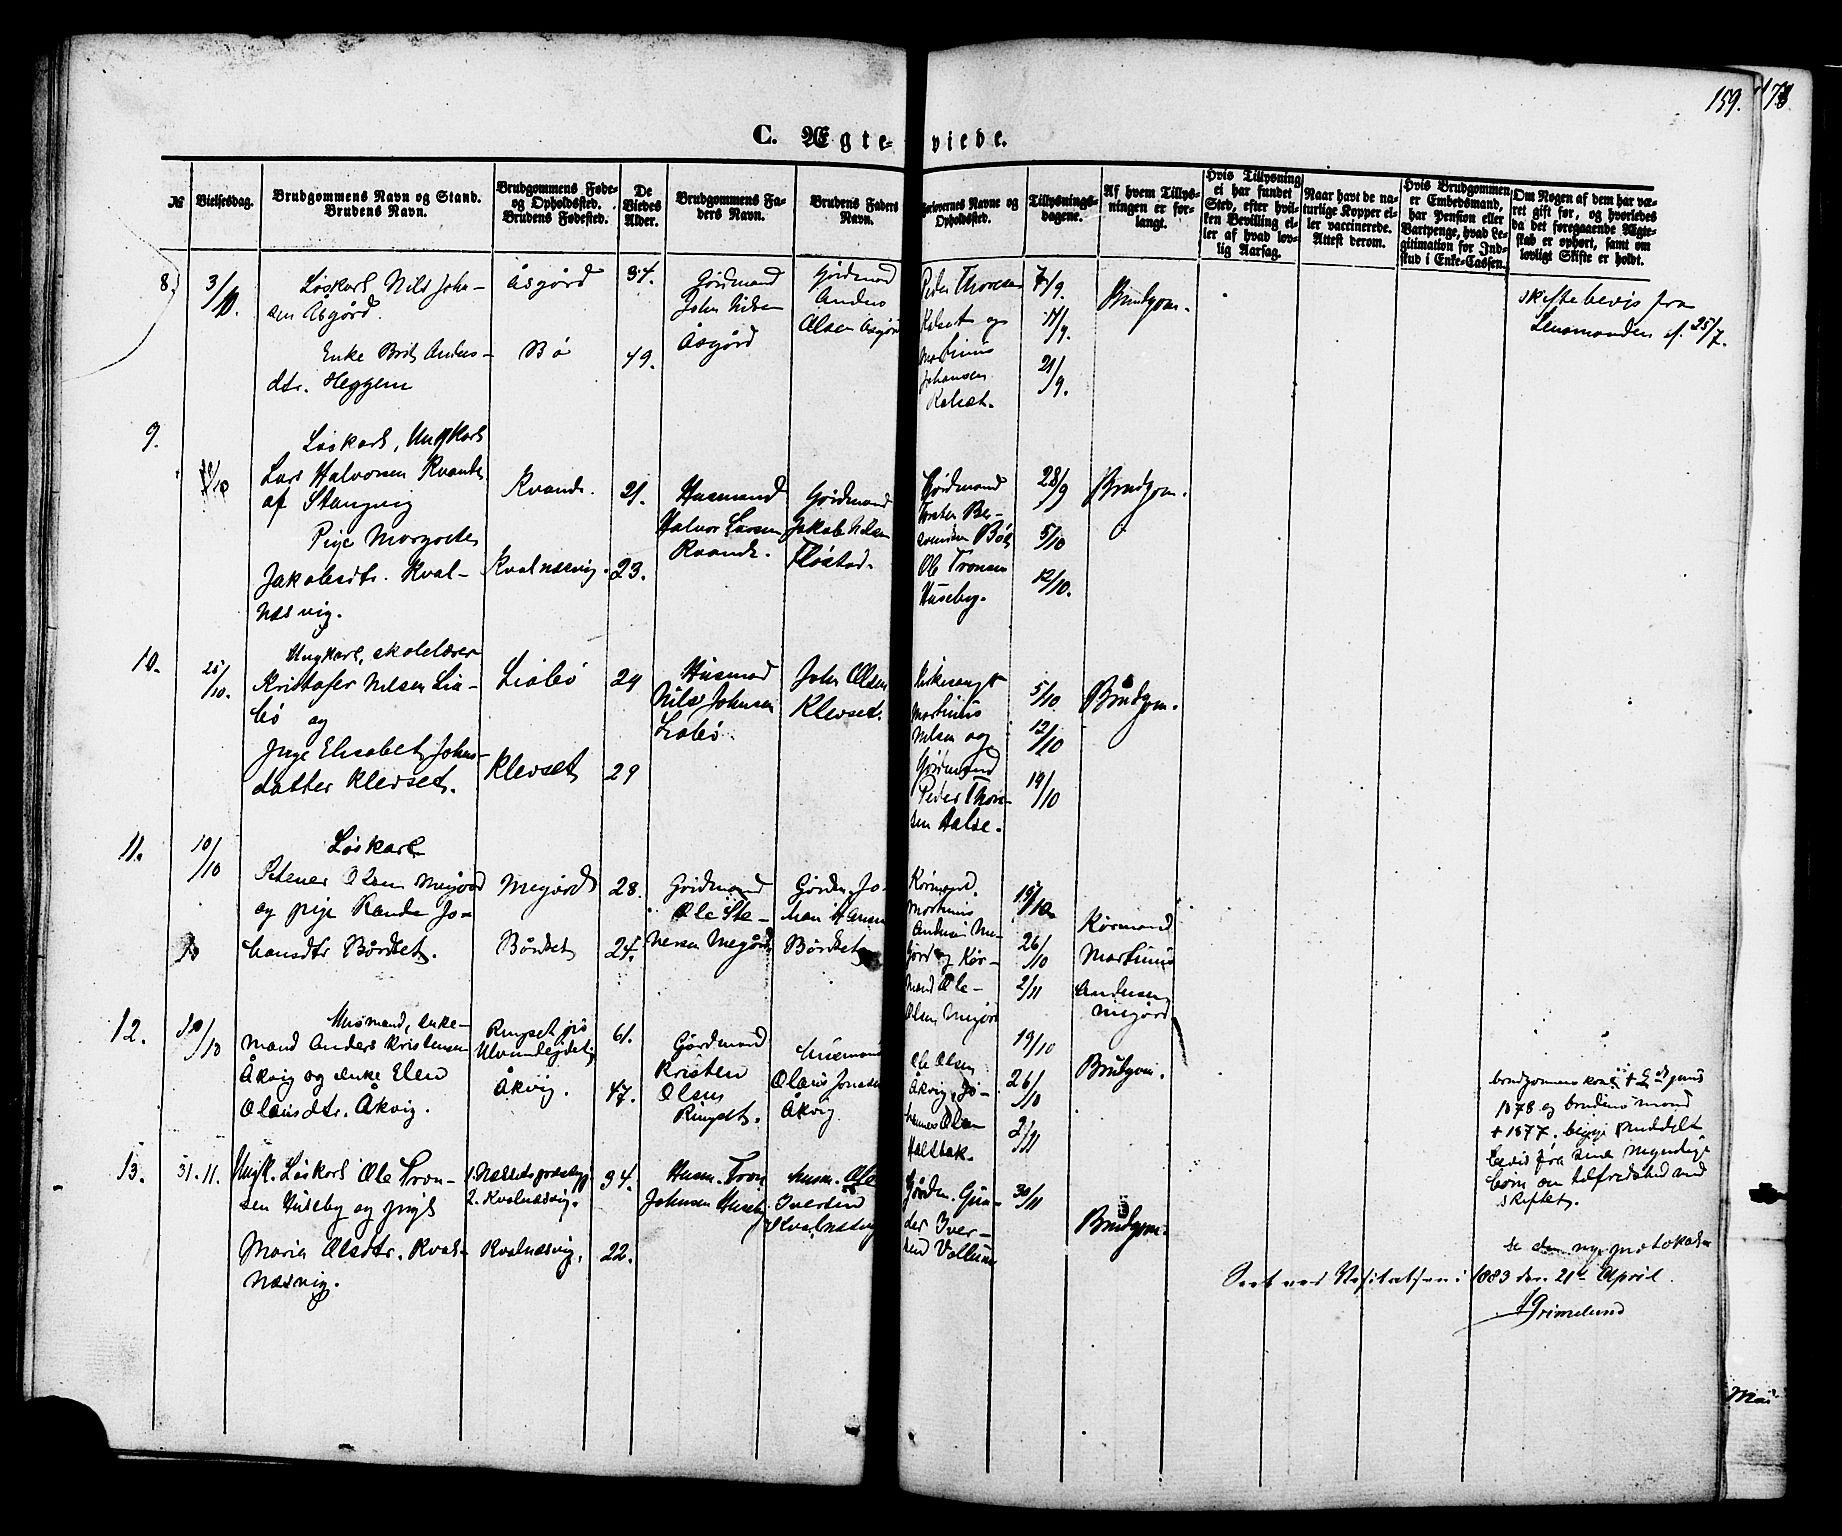 159. 178.
C. Ægte-viede.
№
Vielsesdag.
Brudgommens Navn og Stand.
Brudens Navn.
Brudgommens Føde-
og Opholdssted.
Brudens Fødested.
De
Viedes
Alder.
Brudgommens Fa-
ders Navn.
Brudens Faders
Navn.
Forlovernes Navne og
Opholdssted.
Tillysnings-
dagene.
Af hvem Tillys-
ningen er for-
langt.
Hvis Tillysning
ei har fundet
Sted, efter hvil-
ken Bevilling el-
ler af hvad lov-
lig Aarsag.
Naar havt de na-
turlige Kopper el-
ler vaccinerede.
Attest derom.
Hvis Brudgommen
er Embedsmand,
har Pension eller
Vartpenge, hvad Le-
gitimation for Ind-
skud i Enke-Cassen.
Om Nogen af dem har væ-
ret gift før, og hvorledes
da det foregaaende Ægte-
skab er ophørt, samt om
lovligt Skifte er holdt.
8.
3/10.
Løskarl Nils Joha-
sen Åsgård.
Enke Brit Anders-
dtr. Heggem
Åsgård
Bø
34.
49.
Gårdmand
John Nilsen
Åsgård
Gårdmand
Anders
Olsen Åsgård
Peder Thoresen
Kalset og
Martinus
Johansen
Kalset.
7/9.
/9.
21/9.
Brudgom.
skiftebevis fra
Lensmanden af 25/7.
9.
Løskarl, Ungkarl
Lars Halvorsen Kvande
af Stangvig
Pige Margrete
Jakobsdtr. Kval-
næsvig.
Kvande.
Kvalnæsvig.
21.
23.
Husmand
Halvor Larsen
Kvande.
Gårdmand
Jakob Nilsen
Fløstad.
Gårdmand
Ole Tronsen
Huseby.
28/9
5/10
12/10.
Brudgom.
10.
25/10.
Ungkarl, skolelærer
Kristofer Nilsen Lia-
bø og
Pige Elisabet Johns-
datter Klevset.
Liabø
Klevset
29
29
Husmad
Nils Johnsen
Liabø
John Olsen
Klevset.
Kirkesanger
Martinus
Nilsen og
Gårdmand
Peder Thore-
sen Halse.
5/10
12/10
19/10
Brudgom.
11.
10/10
Løskarl
Stener Olsen Megård
og pige Randi Jo-
hansdtr Bårdset.
Megård
Bårdset
28.
24.
Gårdmand
Ole Ste-
nersen Megård
Gårdm. Jo-
han Hansen
Bårdset
Kårmand.
Martinus
Andersen Me-
gård og Kår-
mand Ole
Olsen Megård
19/10
26/10
2/11
Kårmand
Martinus
Andersen
Megård
12.
/10
Husmand, enke-
mand Anders Kristensen
Åkvig og enke Elen
Olausdtr. Åkvig.
Ringset på
Åkvig.
61.
47.
Gårdmand
Kristen
Olsen
Ringset.
Husmand
Olaus Jonsen
Åkvig
Ole Olsen
Åkvig, Jo-
hannes Olsen
Halsbak.
19/10
26/10
2/11
Brudgom.
brudgommens kone + juni
1878 og brudens mand
+ 1877. begge meddelt
bevis fra sine myndige
børn om tilfredshed ved
skiftet.
13.
31.11.
Ungk. Løskarl Ole Tron-
sen Huseby og pige
Maria Olsdtr. Kval-
næsvig.
2. Kvalnæsvig.
Kvalnæsvig.
34.
22.
Husm. Tron
Johnsen Huseby.
Husm. Ole
Iversen
Kvalnæsvig
Gårdm. Gun-
der Iver-
sen Vallum
30/11
Brudgom.
se den nye protokoll
Seet ved Visitatsen i 1883 den 21de April.
Grimelund